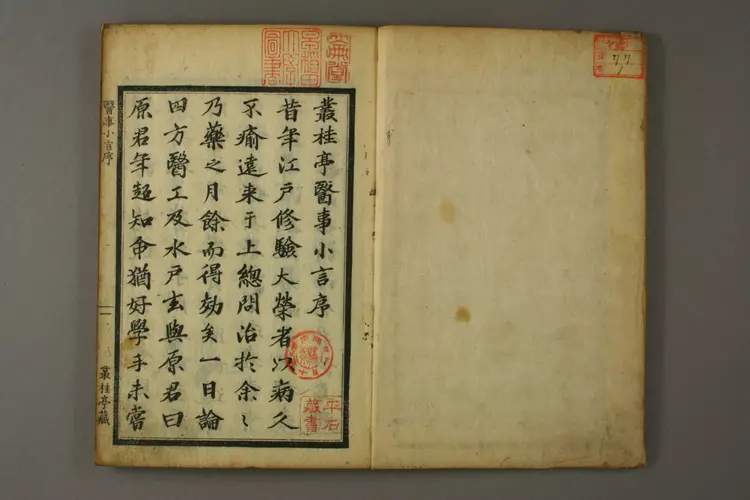 叢桂亭醫事小言序
昔年江戶修驗大榮者以病久
不瘉遠来于上總問治扵余〻
乃藥之月餘而得効矣一日論
四方醫工及水戶玄與原君曰
原君年超知命猶好學手未嘗
醫事小言序
一
叢桂亭藏
平石
藏書
圖書
77
1